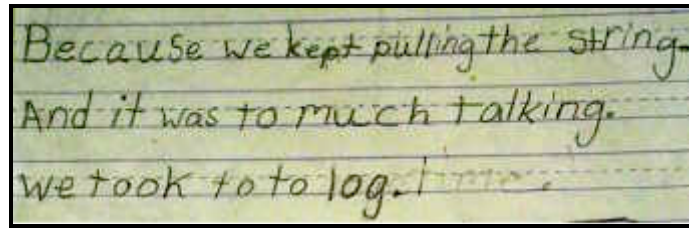 Because we kept pulling the string.
And it was to much talking.
We took to to log.